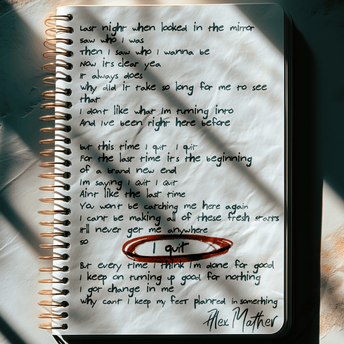 Last night when looked in the mirror
saw who I was
then I saw who I wanna be
Now it's clear yea
it always does
Why did it take so long for me to see
that
I don't like what I'm turning into
And I've been right here before
But this time I quit I quit
For the last time it's the beginning
of a brand new end
I'm saying I quit I quit
Ain't like the last time
You won't be catching me here again
I can't be making all of these fresh starts
it'll never get me anywhere
so
I quit
But every time I think I'm done for good
I keep on turning up good for nothing
I got change in me
Why can't I keep my feet planted in something
Alex Mather